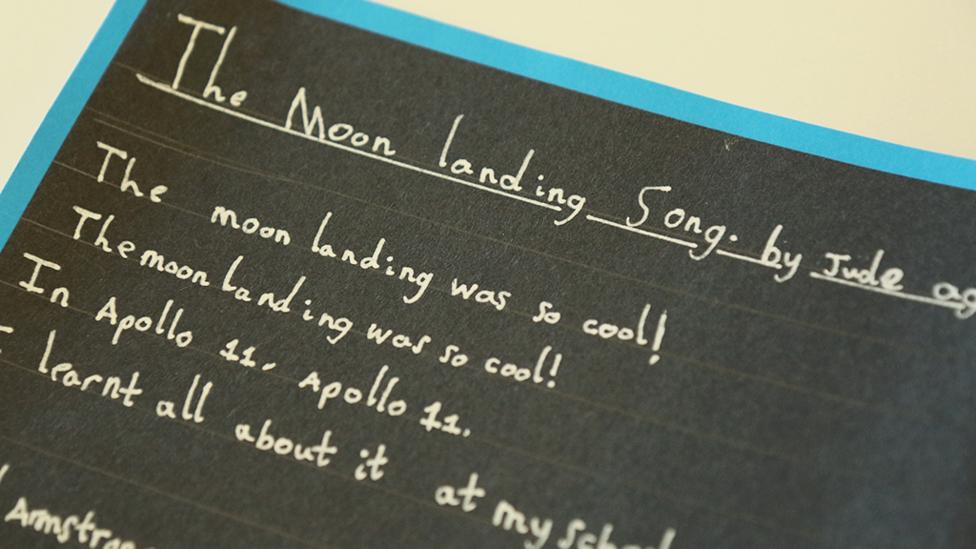 The Moon landing Song. by Jude ag
The moon landing was so cool!
The moon landing was so cool!
In Apollo 11, Apollo 11.
I learnt all about it at my school
Armstrong